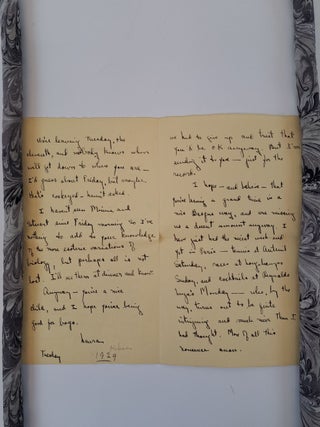 We're leaving Tuesday, the
eleventh, and nobody knows when
we'll get down to where you are —
I'd guess about Friday, but maybe
that's
I haven't seen and
since Friday morning so I've
nothing to add to your knowledge
of the more variations of
history, but perhaps all is not
lost. I'll see them at dinner and know.
Anyway — you're a nice
child, and I hope you're being
good for
Laura
Tuesday
1929
we had to give up and trust that
you'd be O.K. anyway. But I'm
sending it to you — just for the
record.
I hope — and believe — that
you're having a grand time in a
nice way, and are making
us a decent amount anyway. I
have just had the nicest week end
yet in Paris — tennis at Auteuil
Saturday, races at Longchamps
Sunday, and cocktails at Reynaldo
Monday — who, by the
way, turns out to be quite
intriguing and much nicer than I
had thought. More of all this